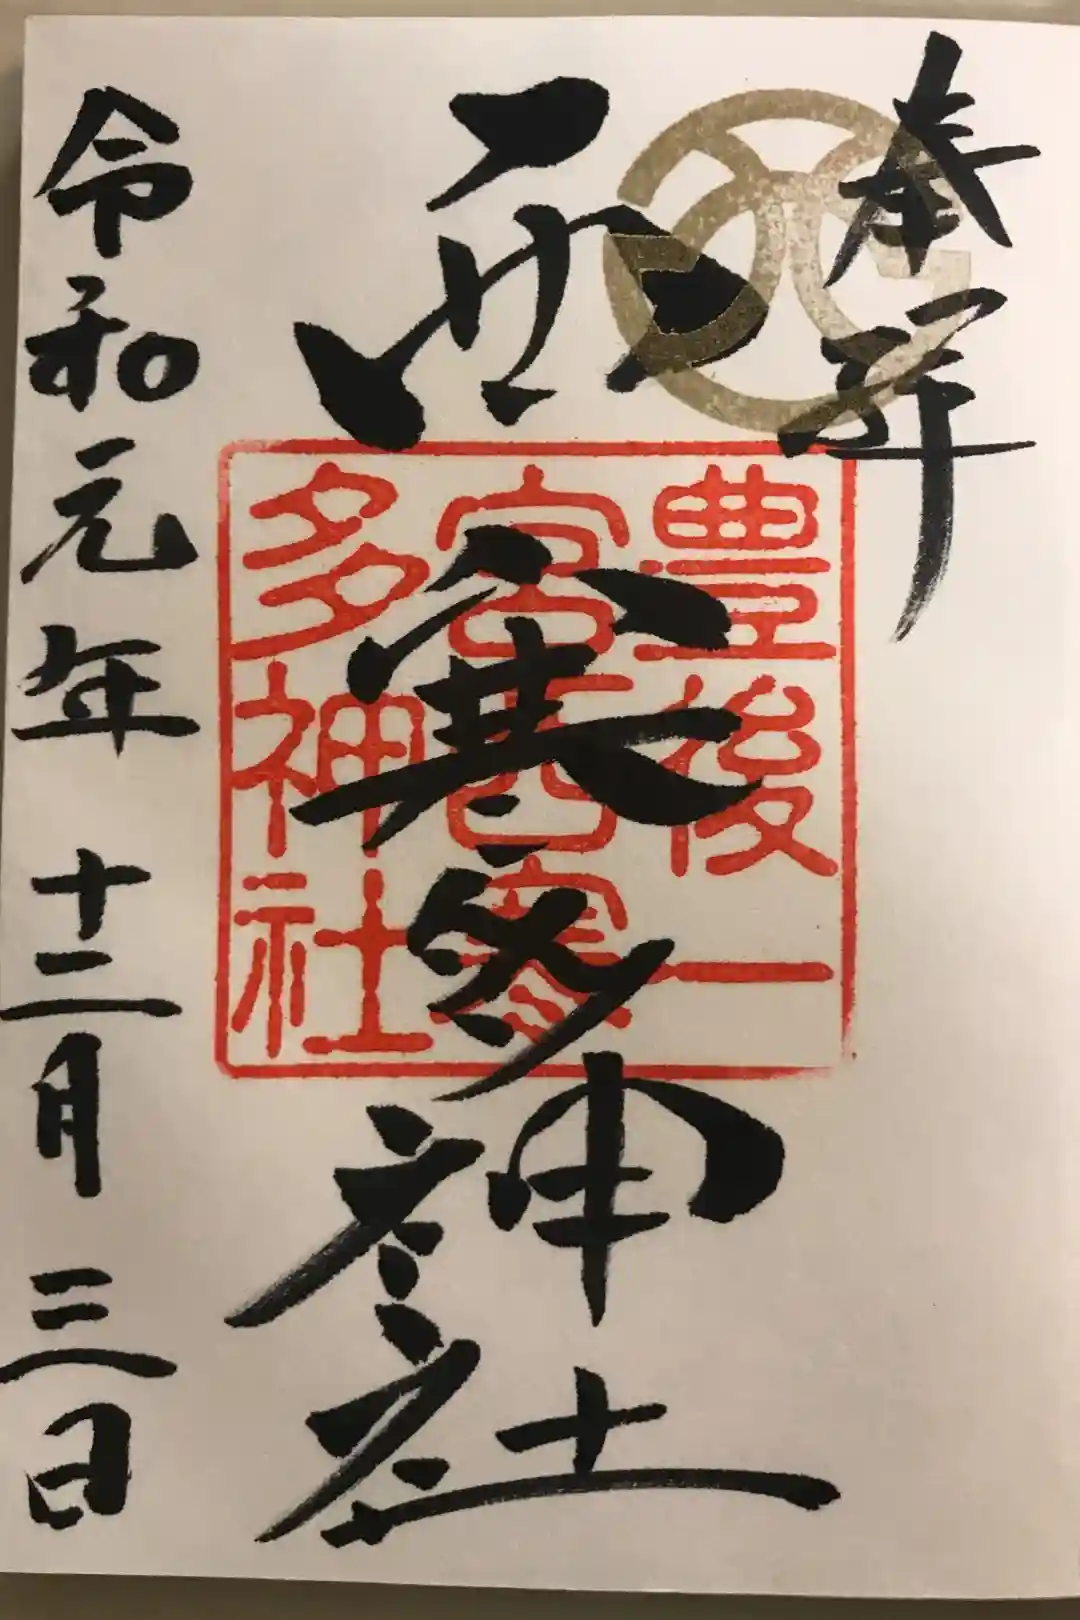 奉拝
豊後一
宮西寒
多神社
西寒多神社
令和元年十二月三日